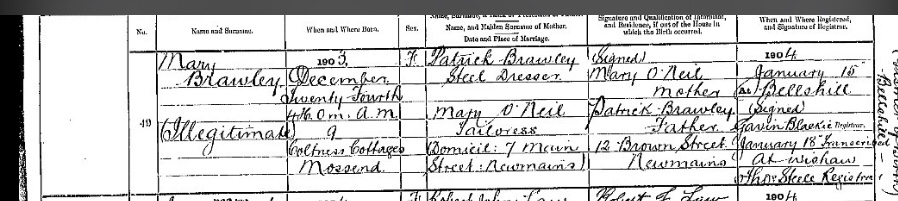 No.
Name and Surname.
When and Where Born.
Sex.
Name, and Maiden Surname of Mother.
Date and Place of Marriage.
Signature and Qualification of Informant,
and Residence, if out of the House in
which the Birth occurred.
When and Where Registered,
and Signature of Registrar.
49
Mary
Brawley
(Illegitimate)
1903,
December
Twenty Fourth
4 H. 0 m. A.M.
9
Coltness Cottages
Mossend
F
Patrick Brawley
Steel Dresser
Mary O'Neil
Tailoress
(Domicil: 7 Main
Street: Newmains)
(Signed)
Mary O'Neil
mother
Patrick Brawley
Father
12 Brown Street
Newmains
1904
January 15
(At) Bellshill
(Signed)
Gavin Blackie Registrar.
January 18 Transcribed
At Wishaw
Thos Steele Registrar
1904